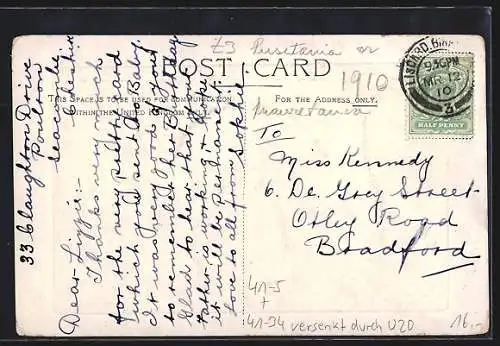 £3 Lusitania or
POST CARD
1910
THIS SPACE IS TO BE USED FOR COMMUNICATION
WITHIN THE UNITED KINGDOM ONLY.
FOR THE ADDRESS ONLY.
Mauretania
LISCARD
9 30PM
MR 12
10
3
HALF PENNY
33 Claughton Drive
Poulton
Seacombe
Cheshire
Dear Lizzie:-
Thanks very much
for the very pretty card
which you sent to Baby.
It was very good of you
to remember her Birthday
Glad to hear that your
Father is working & hope
it will be Permanent.
Love to all from Sophie
To
Miss Kennedy
6. De Grey Street
Otley Road
Bradford
41-5
+
41-34 versenkt durch U20
16.-